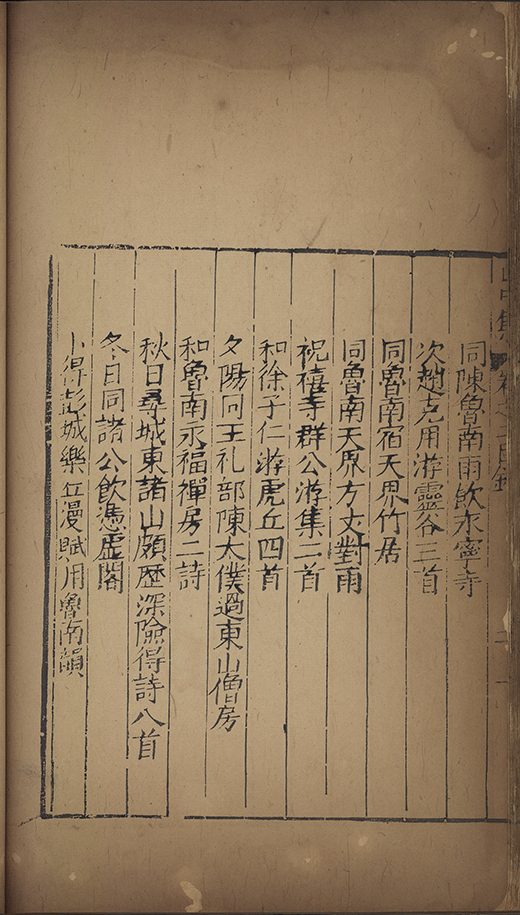 山中集 卷之 目錄
同陳魯南雨飲永寧寺
次趙克用游靈谷三首
同魯南宿天界竹居
同魯南天界方丈對雨
祝禧寺群公游集二首
和徐子仁游虎丘四首
夕陽同王礼部陳太僕過東山僧房
和魯南永福禪房二詩
秋日尋城東諸山頗歷深險得詩八首
冬日同諸公飲憑虛閣
卜得彭城樂丘漫賦用魯南韻